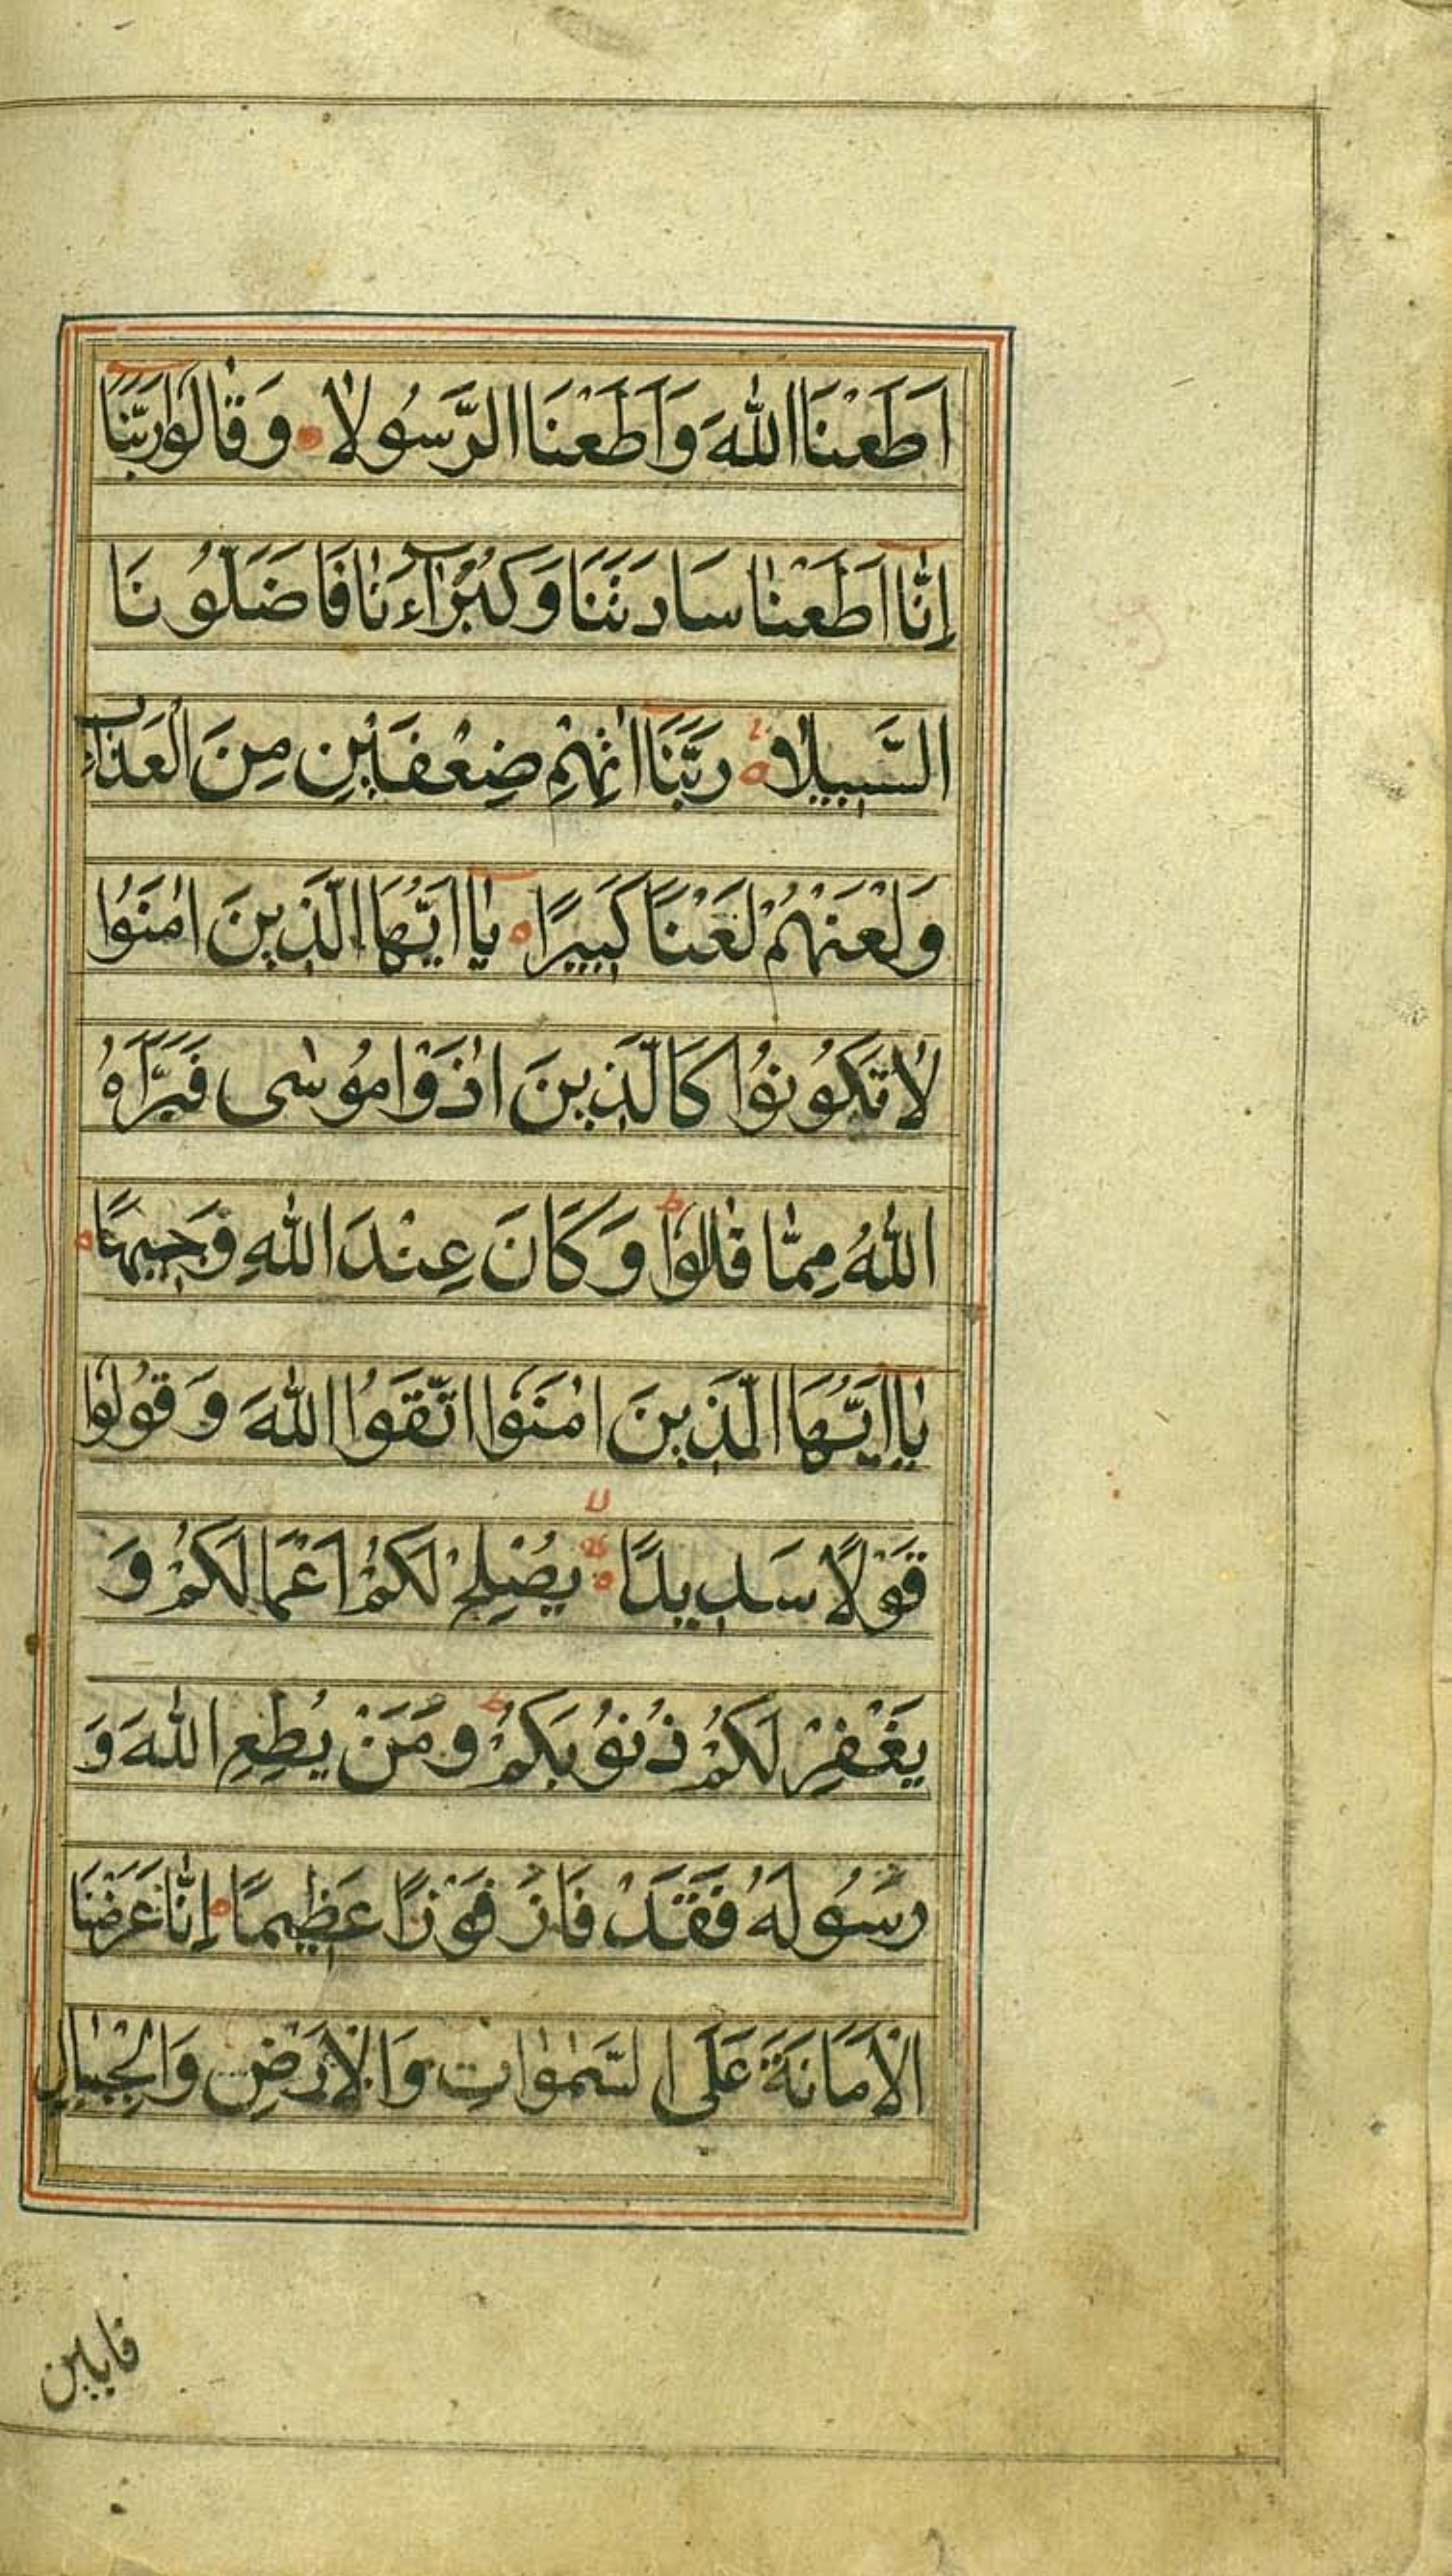 اَطَعْنَا اللّٰهَ وَاَطَعْنَا الرَّسُولَا وَقٰالُوا رَبَّنَا
اِنّٰا اَطَعْنٰا سَادَتَنَا وَكُبَرَآءَنٰا فَاَضَلُّونَا
السَّبِيلَا رَبَّنَا اٰتِهِمْ ضِعْفَيْنِ مِنَ الْعَذَابِ
وَلْعَنْهُمْ لَعْنًا كَبِيرًا يٰا اَيُّهَا الَّذِينَ اٰمَنُوا
لَا تَكُونُوا كَالَّذِينَ اٰذَوْا مُوسٰى فَبَرَّاَهُ
اللّٰهُ مِمّٰا قٰلاوُا وَكَانَ عِنْدَ اللّٰهِ وَجِيهًا
يٰا اَيُّهَا الَّذِينَ اٰمَنُوا اتَّقُوا اللّٰهَ وَ قُولُوا
قَوْلًا سَدِيدًا يُصْلِحْ لَكُمْ اَعْمَالَكُمْ وَ
يَغْفِرْ لَكُمْ ذُنُوبَكُمْ وَمَنْ يُطِعِ اللّٰهَ وَ
رَسُولَهُ فَقَدْ فَازَ فَوْزًا عَظِيمًا اِنّٰا عَرَضْنَا
الْاَمَانَةَ عَلَى السَّمٰوٰاتِ وَالْاَرْضِ وَالْجِبٰالِ
فابين